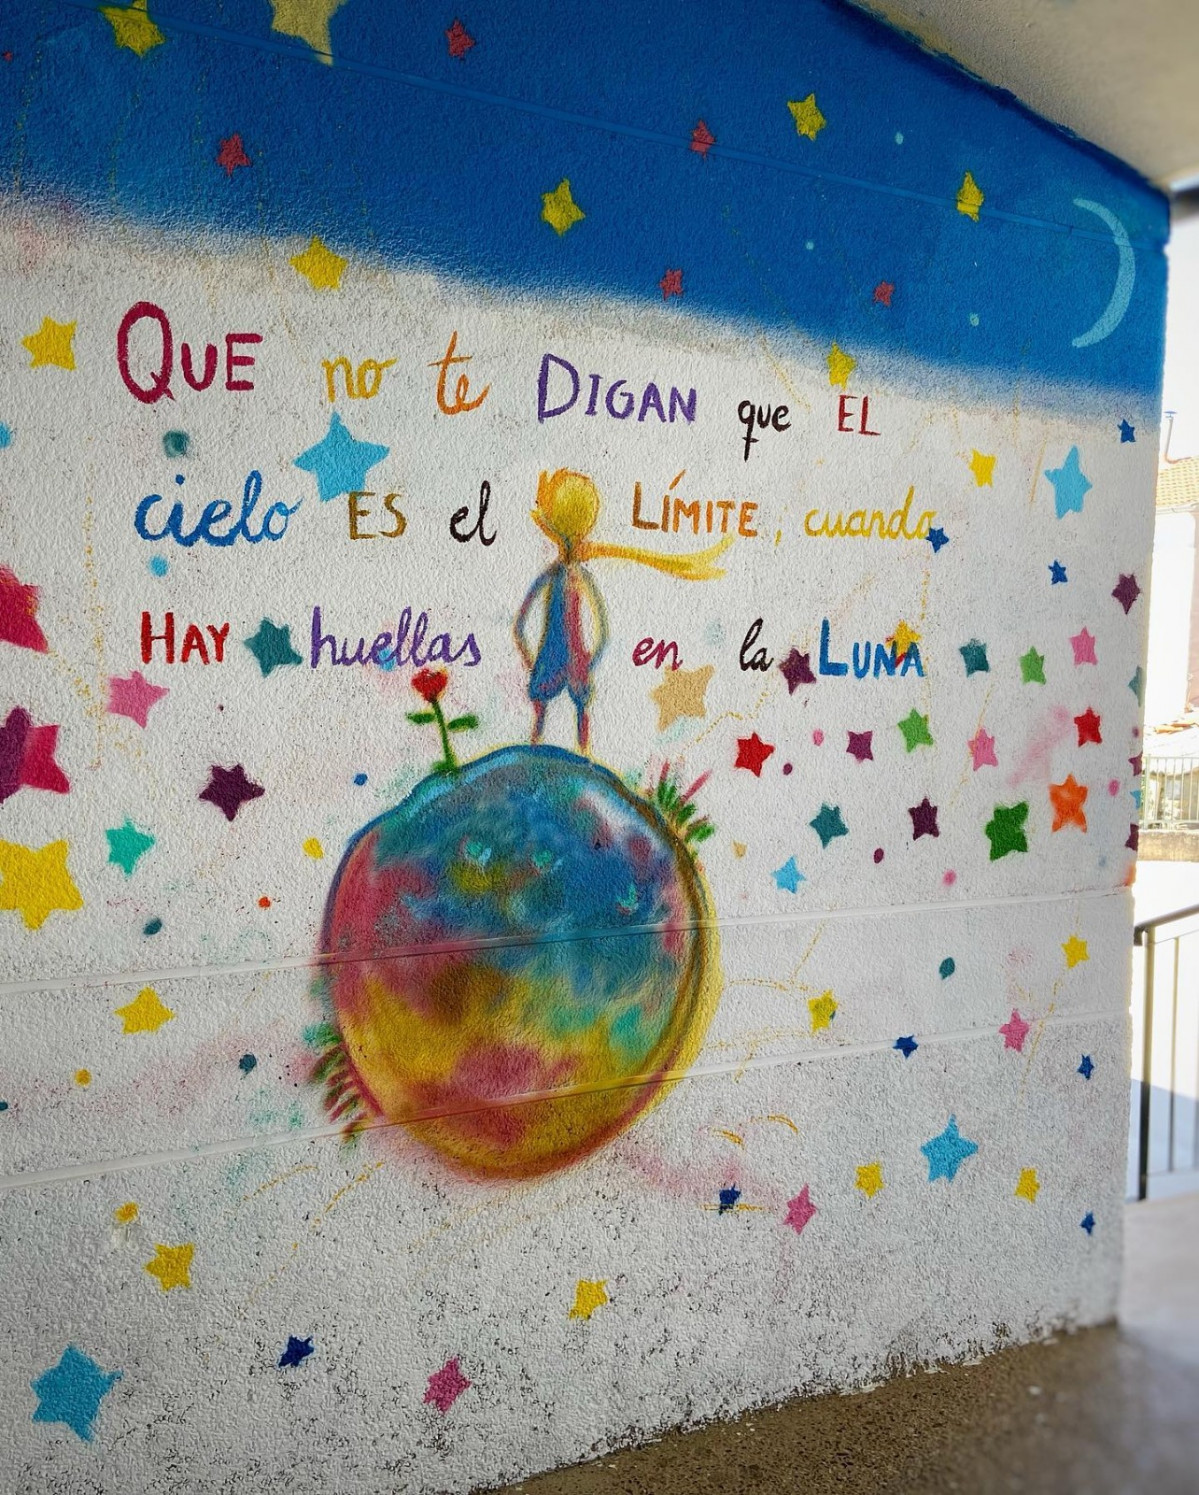 QUE no te DIGAN que EL
cielo ES el LÍMITE, cuando
HAY huellas en la LUNA